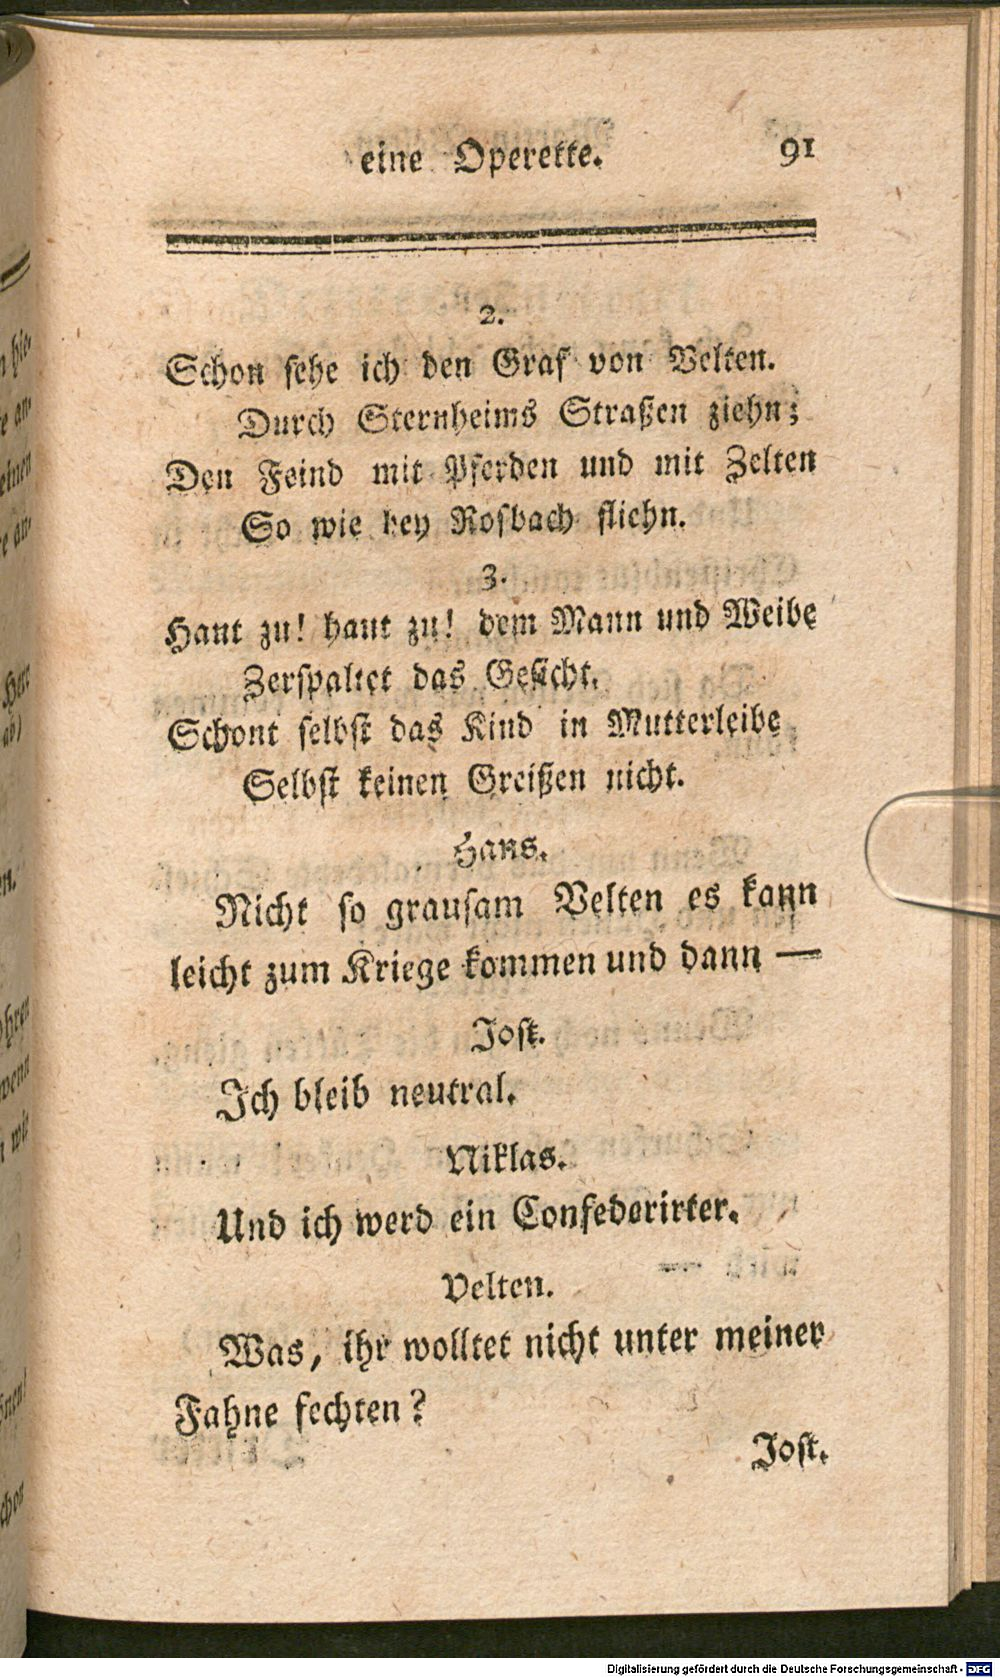 eine Operette. 91
2.
Schon sehe ich den Graf von Velten.
Durch Sternheims Straßen ziehn;
Den Feind mit Pferden und mit Zelten
So wie bey Rosbach fliehn.
3.
Haut zu! haut zu! dem Mann und Weibe
Zerspaltet das Gesicht.
Schont selbst das Kind in Mutterleibe
Selbst keinen Greißen nicht.
Hans.
Nicht so grausam Velten es kann
leicht zum Kriege kommen und dann —
Jost.
Ich bleib neutral.
Niklas.
Und ich werd ein Confederirter.
Velten.
Was, ihr wolltet nicht unter meiner
Fahne fechten?
Jost.
Digitalisierung gefördert durch die Deutsche Forschungsgemeinschaft - DFG